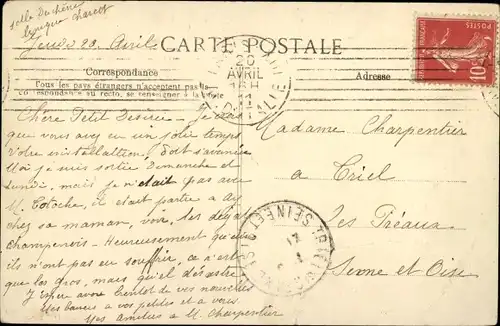 Melle Duchêne
Clinique Charcot
Jeudi 20 Avril
CARTE POSTALE
Correspondance
Tous les pays étrangers n'acceptent pas la
correspondance au recto, se renseigner à la Poste
Adresse
10
20
AVRIL
Chère Petit Desirée – Je crois
que vous avez eu un jolie temps
Votre installation, doit s'avancer
Moi je suis sortie Dimanche et
Lundi, mais je n'était pas avec
M. Totoche, il était partie a Ay
chez sa maman, voir les dégats
Champenois – Heureusement qu'eux
ils n'ont pas eu souffrir, ca n'est
que les gros, mais quel désastre
J'espère avoir bientot de vos nouvelles
Mes baisers a vos petites et a vous
Mes amities a M. Charpentier
Madame Charpentier
a
Triel
Les Préaux
Seine et Oise
TRIEL
SEINE ET OISE
21